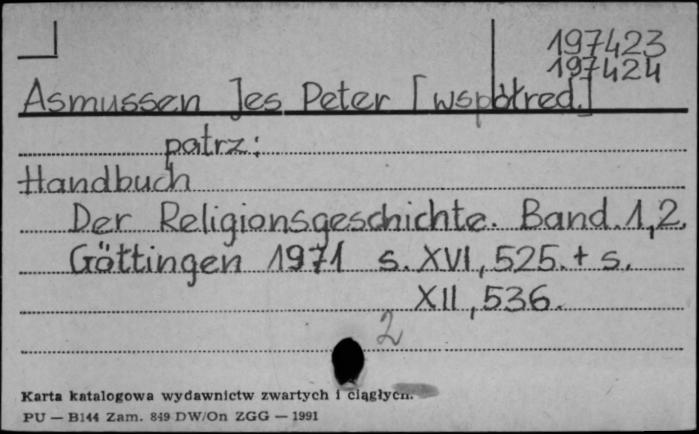 197423
197424
Asmussen Jes Peter [współred.]
patrz:
Handbuch
Der Religionsgeschichte. Band. 1,2.
Göttingen 1971 s. XVI, 525. + s.
XII, 536.
2
Karta katalogowa wydawnictw zwartych i ciągłych.
PU — B144 Zam. 849 DW/On ZGG — 1991